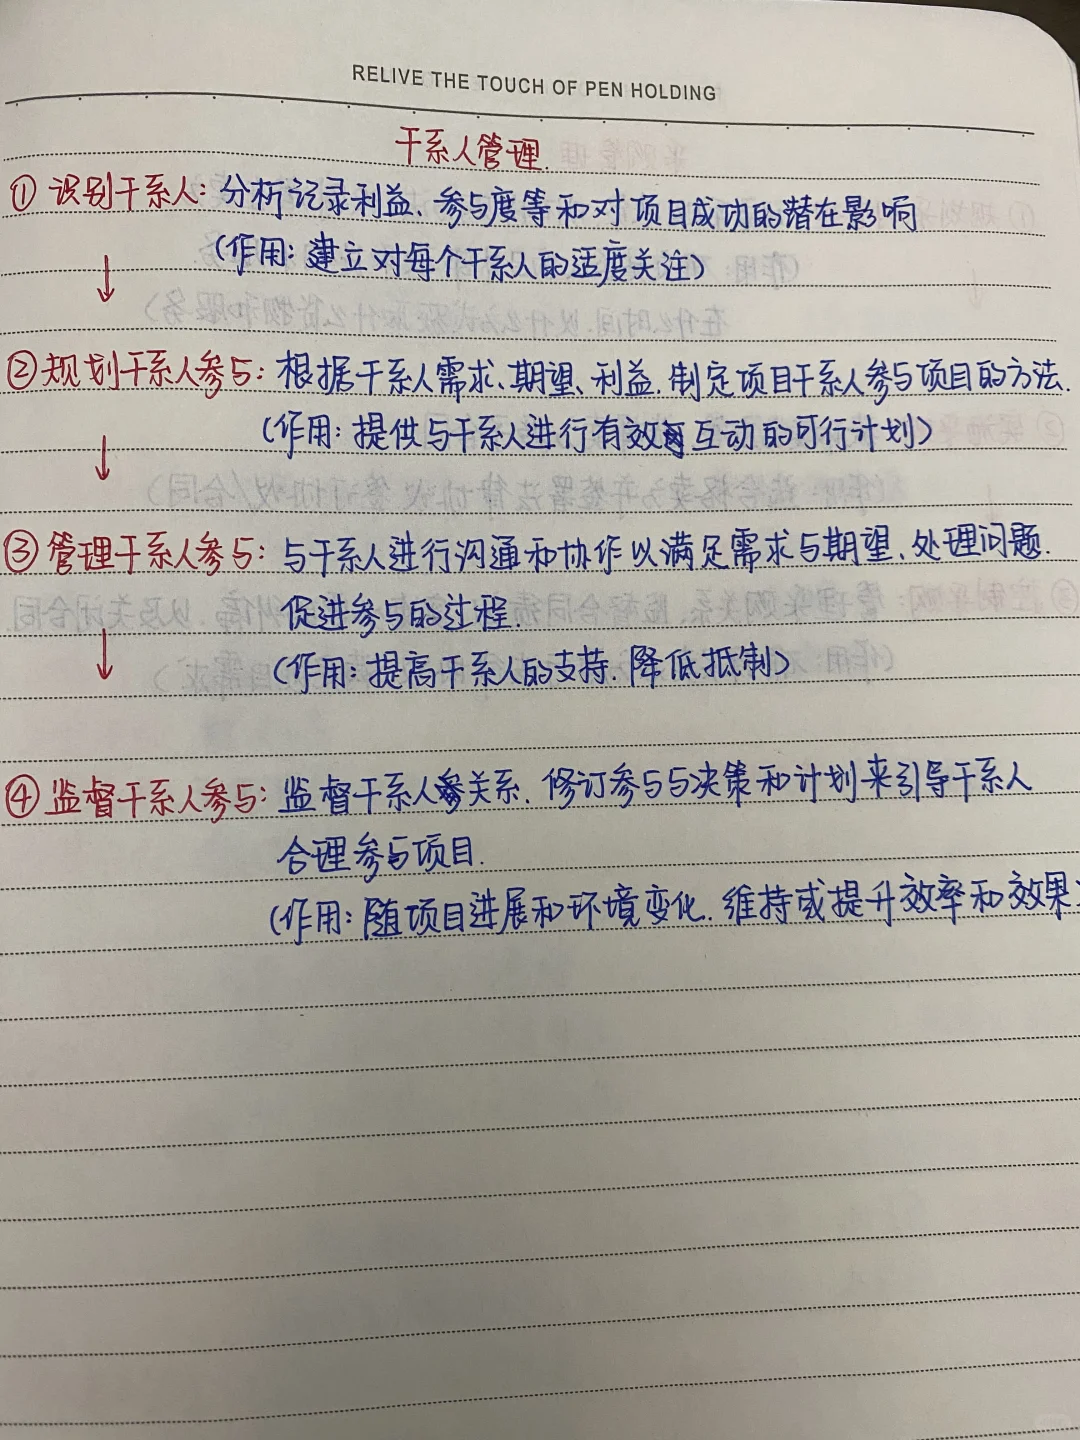 RELIVE THE TOUCH OF PEN HOLDING
干系人管理.
① 识别干系人: 分析记录利益、参与度等和对项目成功的潜在影响
(作用: 建立对每个干系人的适度关注)
↓
② 规划干系人参与: 根据干系人需求、期望、利益, 制定项目干系人参与项目的方法.
(作用: 提供与干系人进行有效互动的可行计划)
↓
③ 管理干系人参与: 与干系人进行沟通和协作以满足需求与期望、处理问题.
促进参与的过程.
↓
(作用: 提高干系人的支持. 降低抵制)
④ 监督干系人参与: 监督干系人关系. 修订参与与决策和计划来引导干系人
合理参与项目.
(作用: 随项目进展和环境变化. 维持或提升效率和效果)